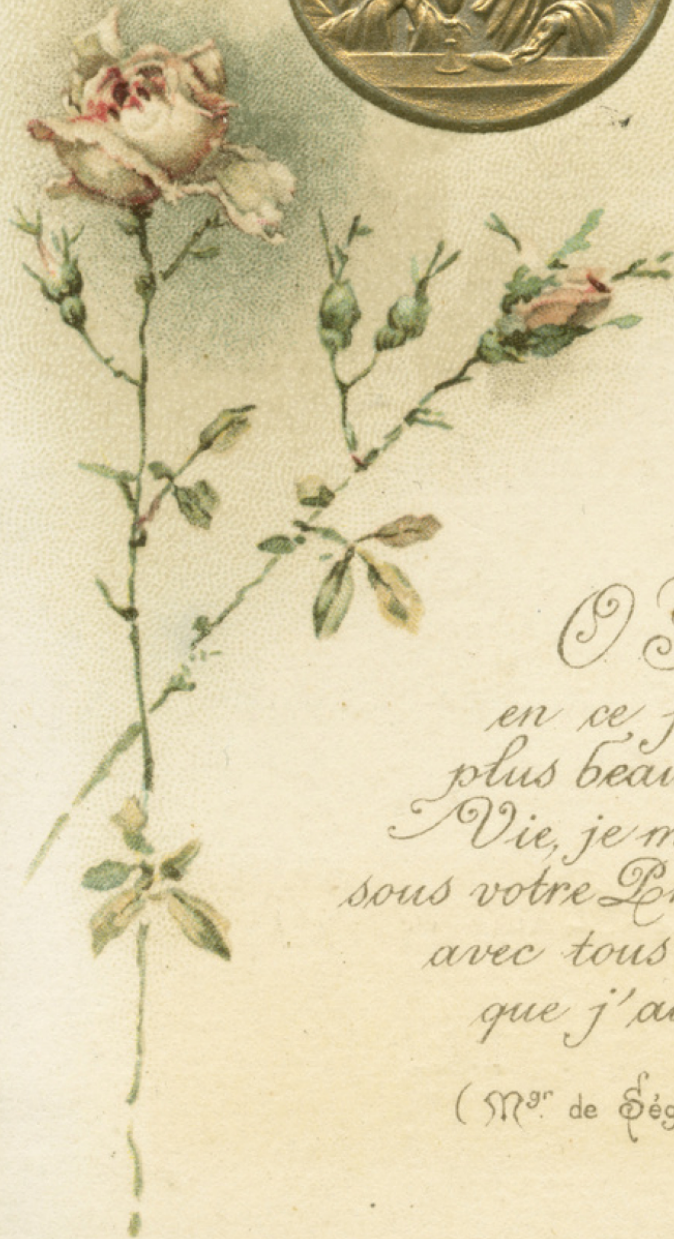 O
en ce j
plus beau
Vie, je m
sous votre
avec tous
que j'a
( Mgr. de Ség